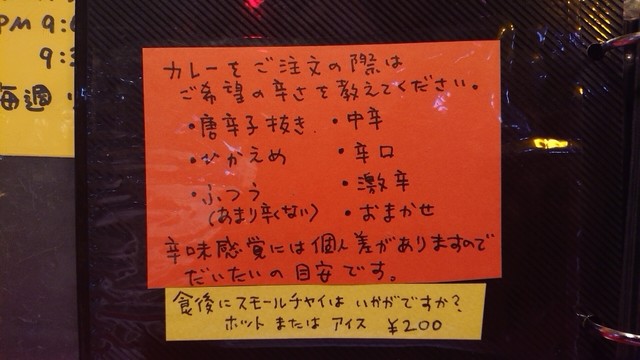 PM 9:
9:3
毎週
カレーをご注文の際は
ご希望の辛さを教えてください。
・唐辛子抜き ・中辛
・ひかえめ ・辛口
・ふつう ・激辛
(あまり辛くない) ・おまかせ
辛味感覚には個人差がありますので
だいたいの目安です。
食後にスモールチャイはいかがですか?
ホットまたはアイス ¥200